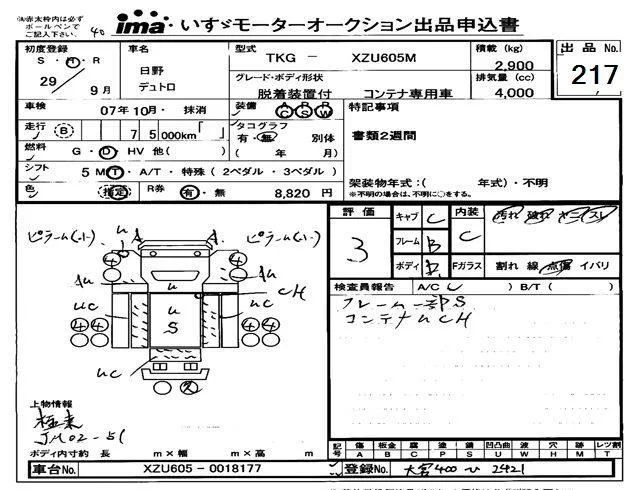 ima いすゞモーターオークション出品申込書
※赤太枠内は必ず
ボールペンで
ご記入下さい。
40
初度登録
S・H・R
29年 9月
車名
日野
デュトロ
型式
TKG － XZU605M
グレード・ボディ形状
脱着装置付 コンテナ専用車
積載 (kg)
2,900
排気量 (cc)
4,000
出品 No.
217
車検 07年10月・ 抹消
装備 AC PS PW
特記事項
書類2週間
走行 B 75000km「 」
タコグラフ
有・無 別体
( 年 月)
燃料 G・D HV 他( )
シフト 5 MT・A/T・特殊(2ペダル・3ペダル)
色 指定 R券 有・無 8,820 円
架装物年式:( 年式)・不明
※不明の場合は、不明に○をする。
評価 3
キャブ C
フレーム B
ボディ D
内装 C
Fガラス
汚れ 破れ ヤニ スレ
割れ 線 点傷 イバリ
検査員報告 A/C( ) B/T( )
フレーム一部S
コンテナUCH
ピラーU(小) u A A ピラーU(小)
4 4
Au u Au
uc u uc CH
S
4 4 4 4
uc
2
上物情報
極東
JM02-51
ボディ内寸約 長 m×幅 m×高 m
記号 傷 板金 腐 塗 錆 凹凸曲 波 穴 跡 レツ割
A B C P S U W H M T
車台No. XZU605－0018177
登録No. 大宮400 ひ 2421